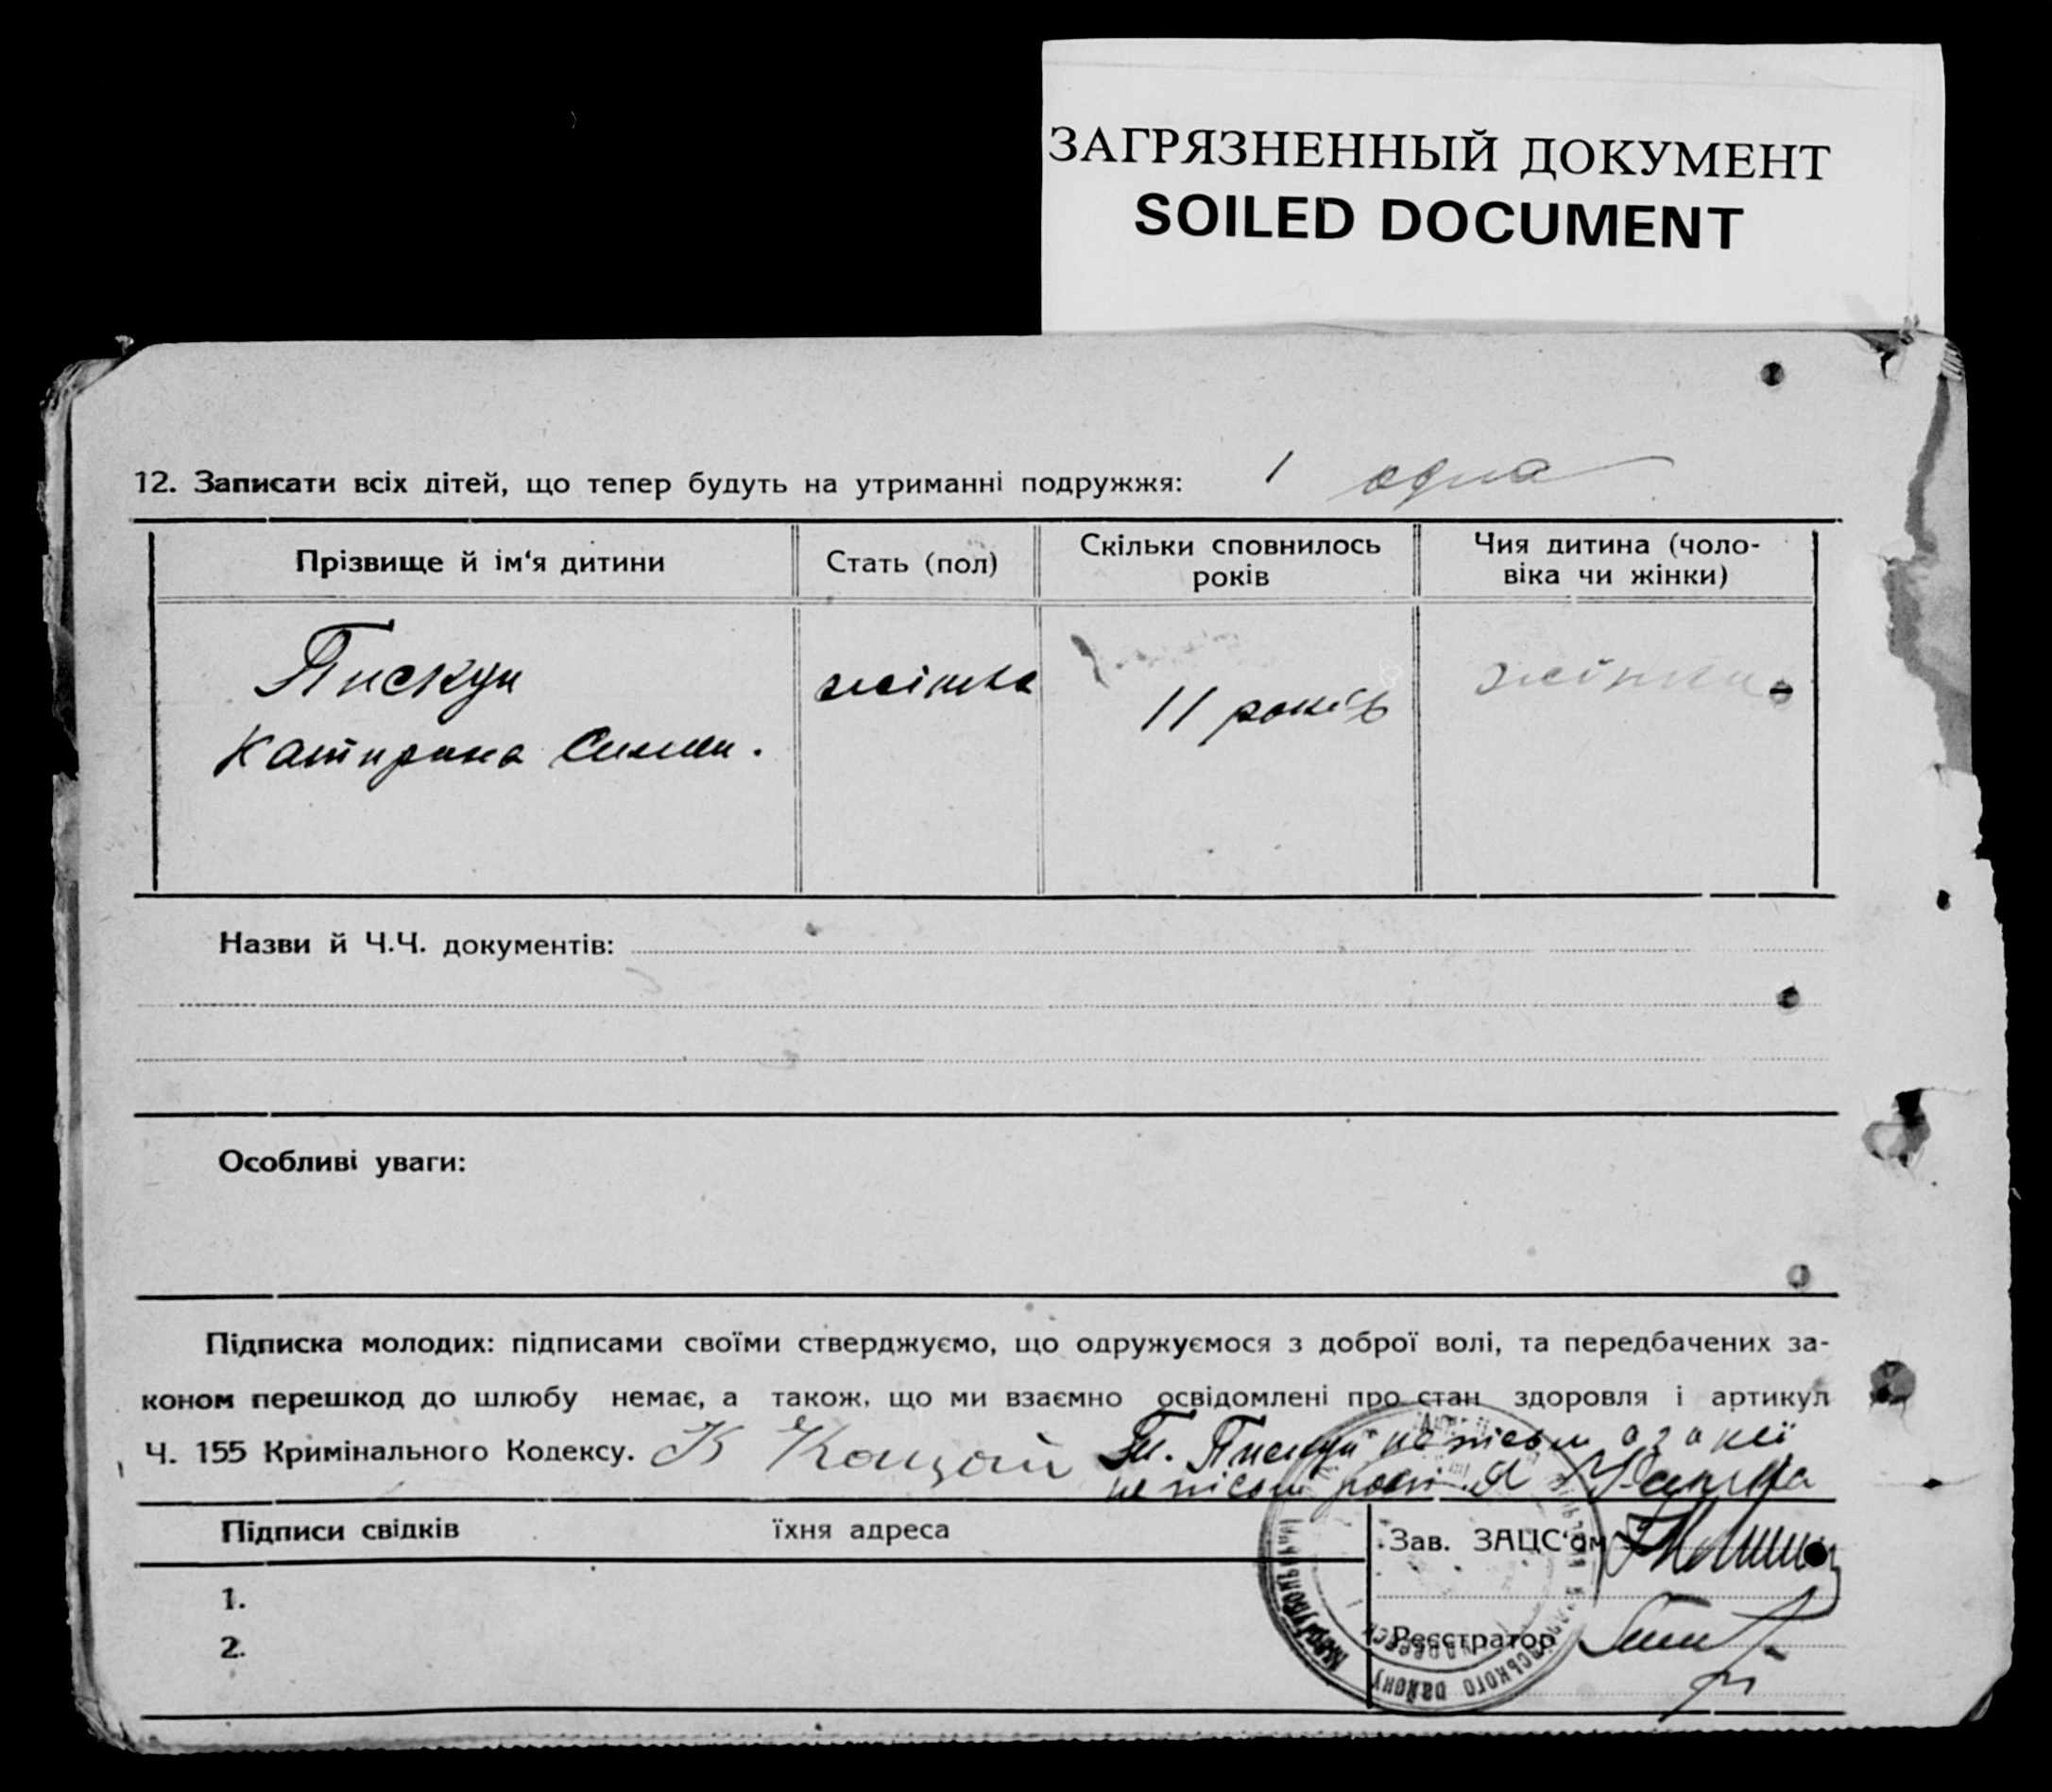 ЗАГРЯЗНЕННЫЙ ДОКУМЕНТ
SOILED DOCUMENT
12. Записати всіх дітей, що тепер будуть на утриманні подружжя: 1 одна
Прізвище й ім‘я дитини Стать (пол) Скільки сповнилось років Чия дитина (чоловіка чи жінки)
Пискун жінка 11 років жінки
Катирина Симен.
Назви й Ч.Ч. документів:
Особливі уваги:
Підписка молодих: підписами своїми стверджуємо, що одружуємося з доброї волі, та передбачених за-
коном перешкод до шлюбу немає, а також, що ми взаємно освідомлені про стан здоровля і артикул
Ч. 155 Кримінального Кодексу. К Пискун
Підписи свідків їхня адреса Зав. ЗАЦС‘ом
1.
2. Реєстратор
району